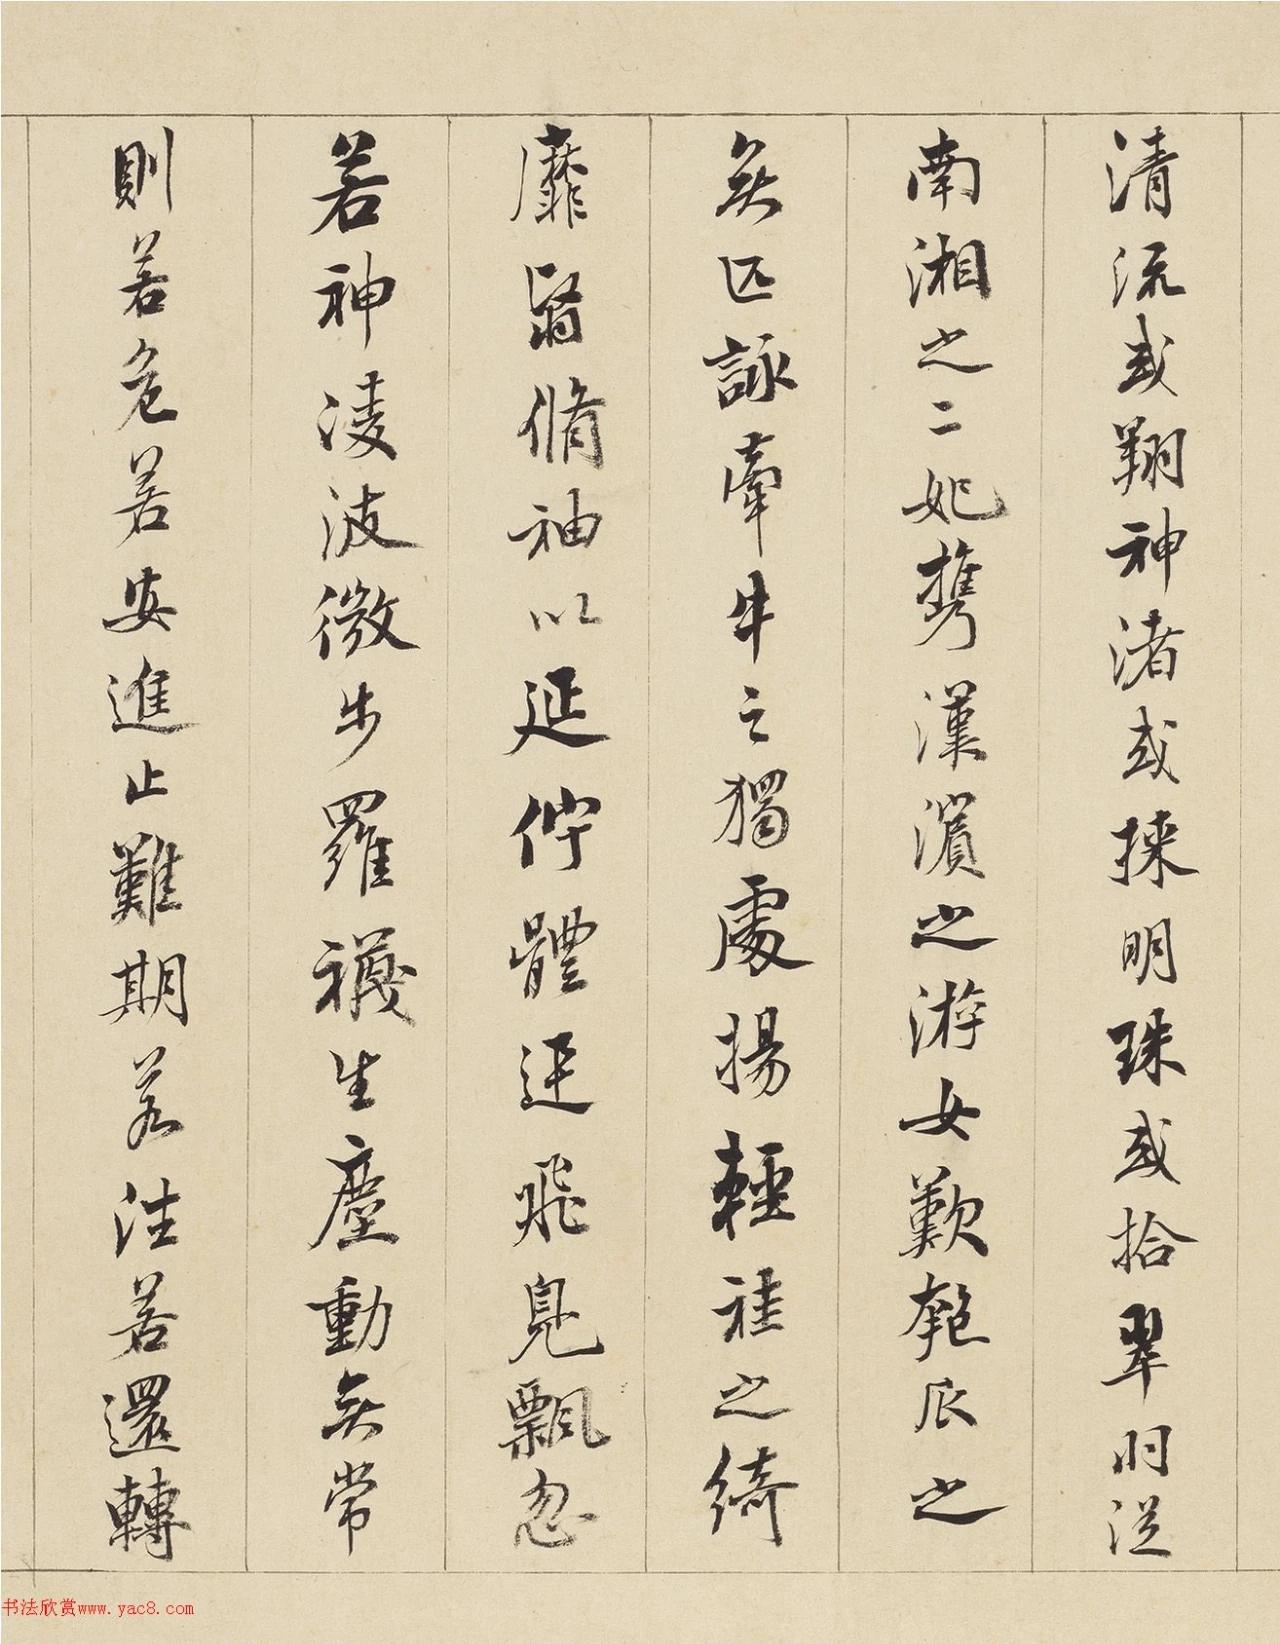 清流或翔神渚或採明珠或拾翠羽從
南湘之二妃攜漢濱之游女歎匏瓜之
無匹詠牽牛之獨處揚輕袿之綺
靡翳脩袖以延佇體迅飛鳧飄忽
若神淩波微步羅襪生塵動無常
則若危若安進止難期若往若還轉
书法欣赏www.yac8.com